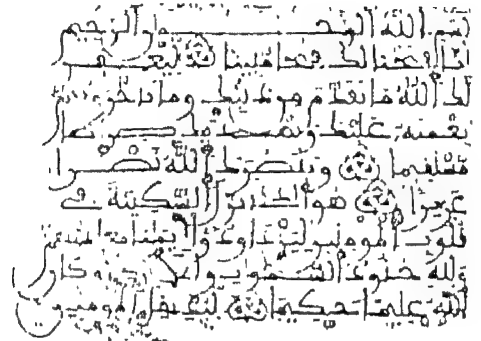 بسم الله الرحمن الرحيم
إنا فتحنا لك فتحا مبينا ليغفر
لك الله ما تقدم من ذنبك وما تأخر ويتم
نعمته عليك ويهديك صرطا
مستقيما وينصرك الله نصرا
عزيزا هو الذي أنزل السكينة في
قلوب المومنين ليزدادوا إيمنا مع إيمنهم
ولله جنود السموت والأرض وكان
الله عليما حكيما ليدخل المومنين